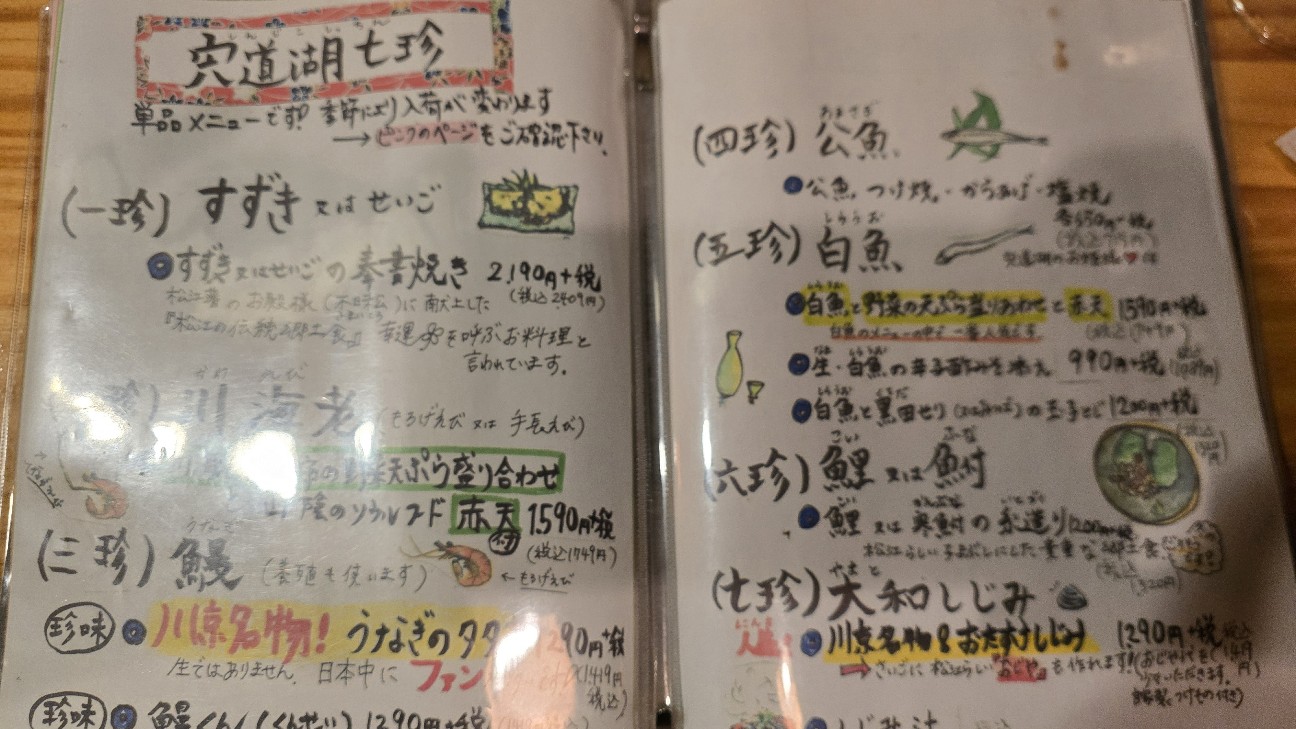 しんじこしちちん
宍道湖七珍
単品メニューです! 季節により入荷が変わります
→ピンクのページをご確認下さい。
(一珍) すずき又はせいご
すずき又はせいごの奉書焼き 2,190円+税
(税込2409円)
松江藩のお殿様()に献上した
『松江の伝統郷土食』 幸運を呼ぶお料理と
言われています。
珍) 川海老 (もろげえび又は手長えび)
天ぷら盛り合わせ
山陰のソウルフード 赤天付 1590円+税
(税込1749円)
うなぎ
(三珍) 鰻 (養殖も使います)
←もろげえび
珍味 川京名物! うなぎのタタ 290円+税
生ではありません。日本中にファン
(1419円税込)
珍味 鰻くんくん(くんせい) 1290円+税
(四珍) 公魚
公魚 つけ焼・からあげ・塩焼
各650円+税
しらうお
(五珍) 白魚
宍道湖のお姫様♥
白魚と野菜の天ぷら盛りあわせと赤天 1590円+税
白魚のメニューの中で一番人気です
生・白魚の辛子酢みそ添え 990円+税
(税込1089円)
白魚と黒田せりの玉子とじ 1200円+税
(税込1320円)
こい ふな
(六珍) 鯉又は鮒
鯉又は寒鮒の糸造り 1200円+税
松江らしい子まぶしにした貴重な郷土食
(税込1320円)
やまと
(七珍) 大和しじみ
人気 川京名物 おたすけしじみ 1290円+税
→さいごに松江らしい"おじや"を作れます!(おじや代を
いただきます。
自家製つけもの付き)
しじみ汁